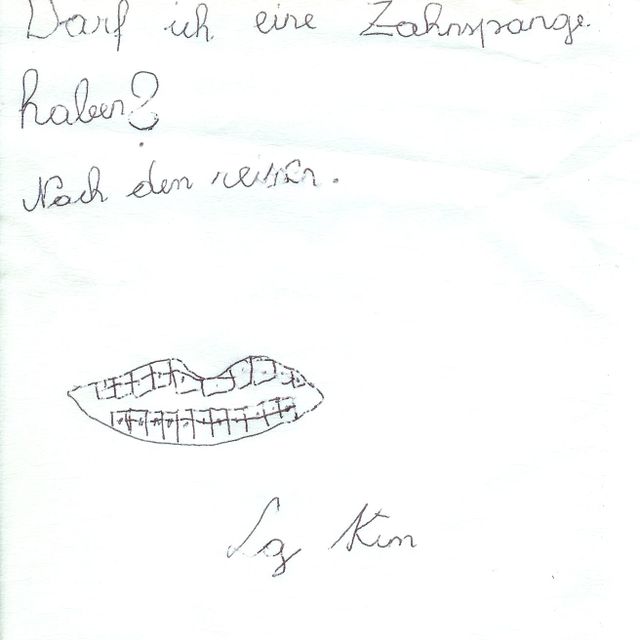 Darf ich eine Zahnspange
haben?
Nach den
Lg Kim